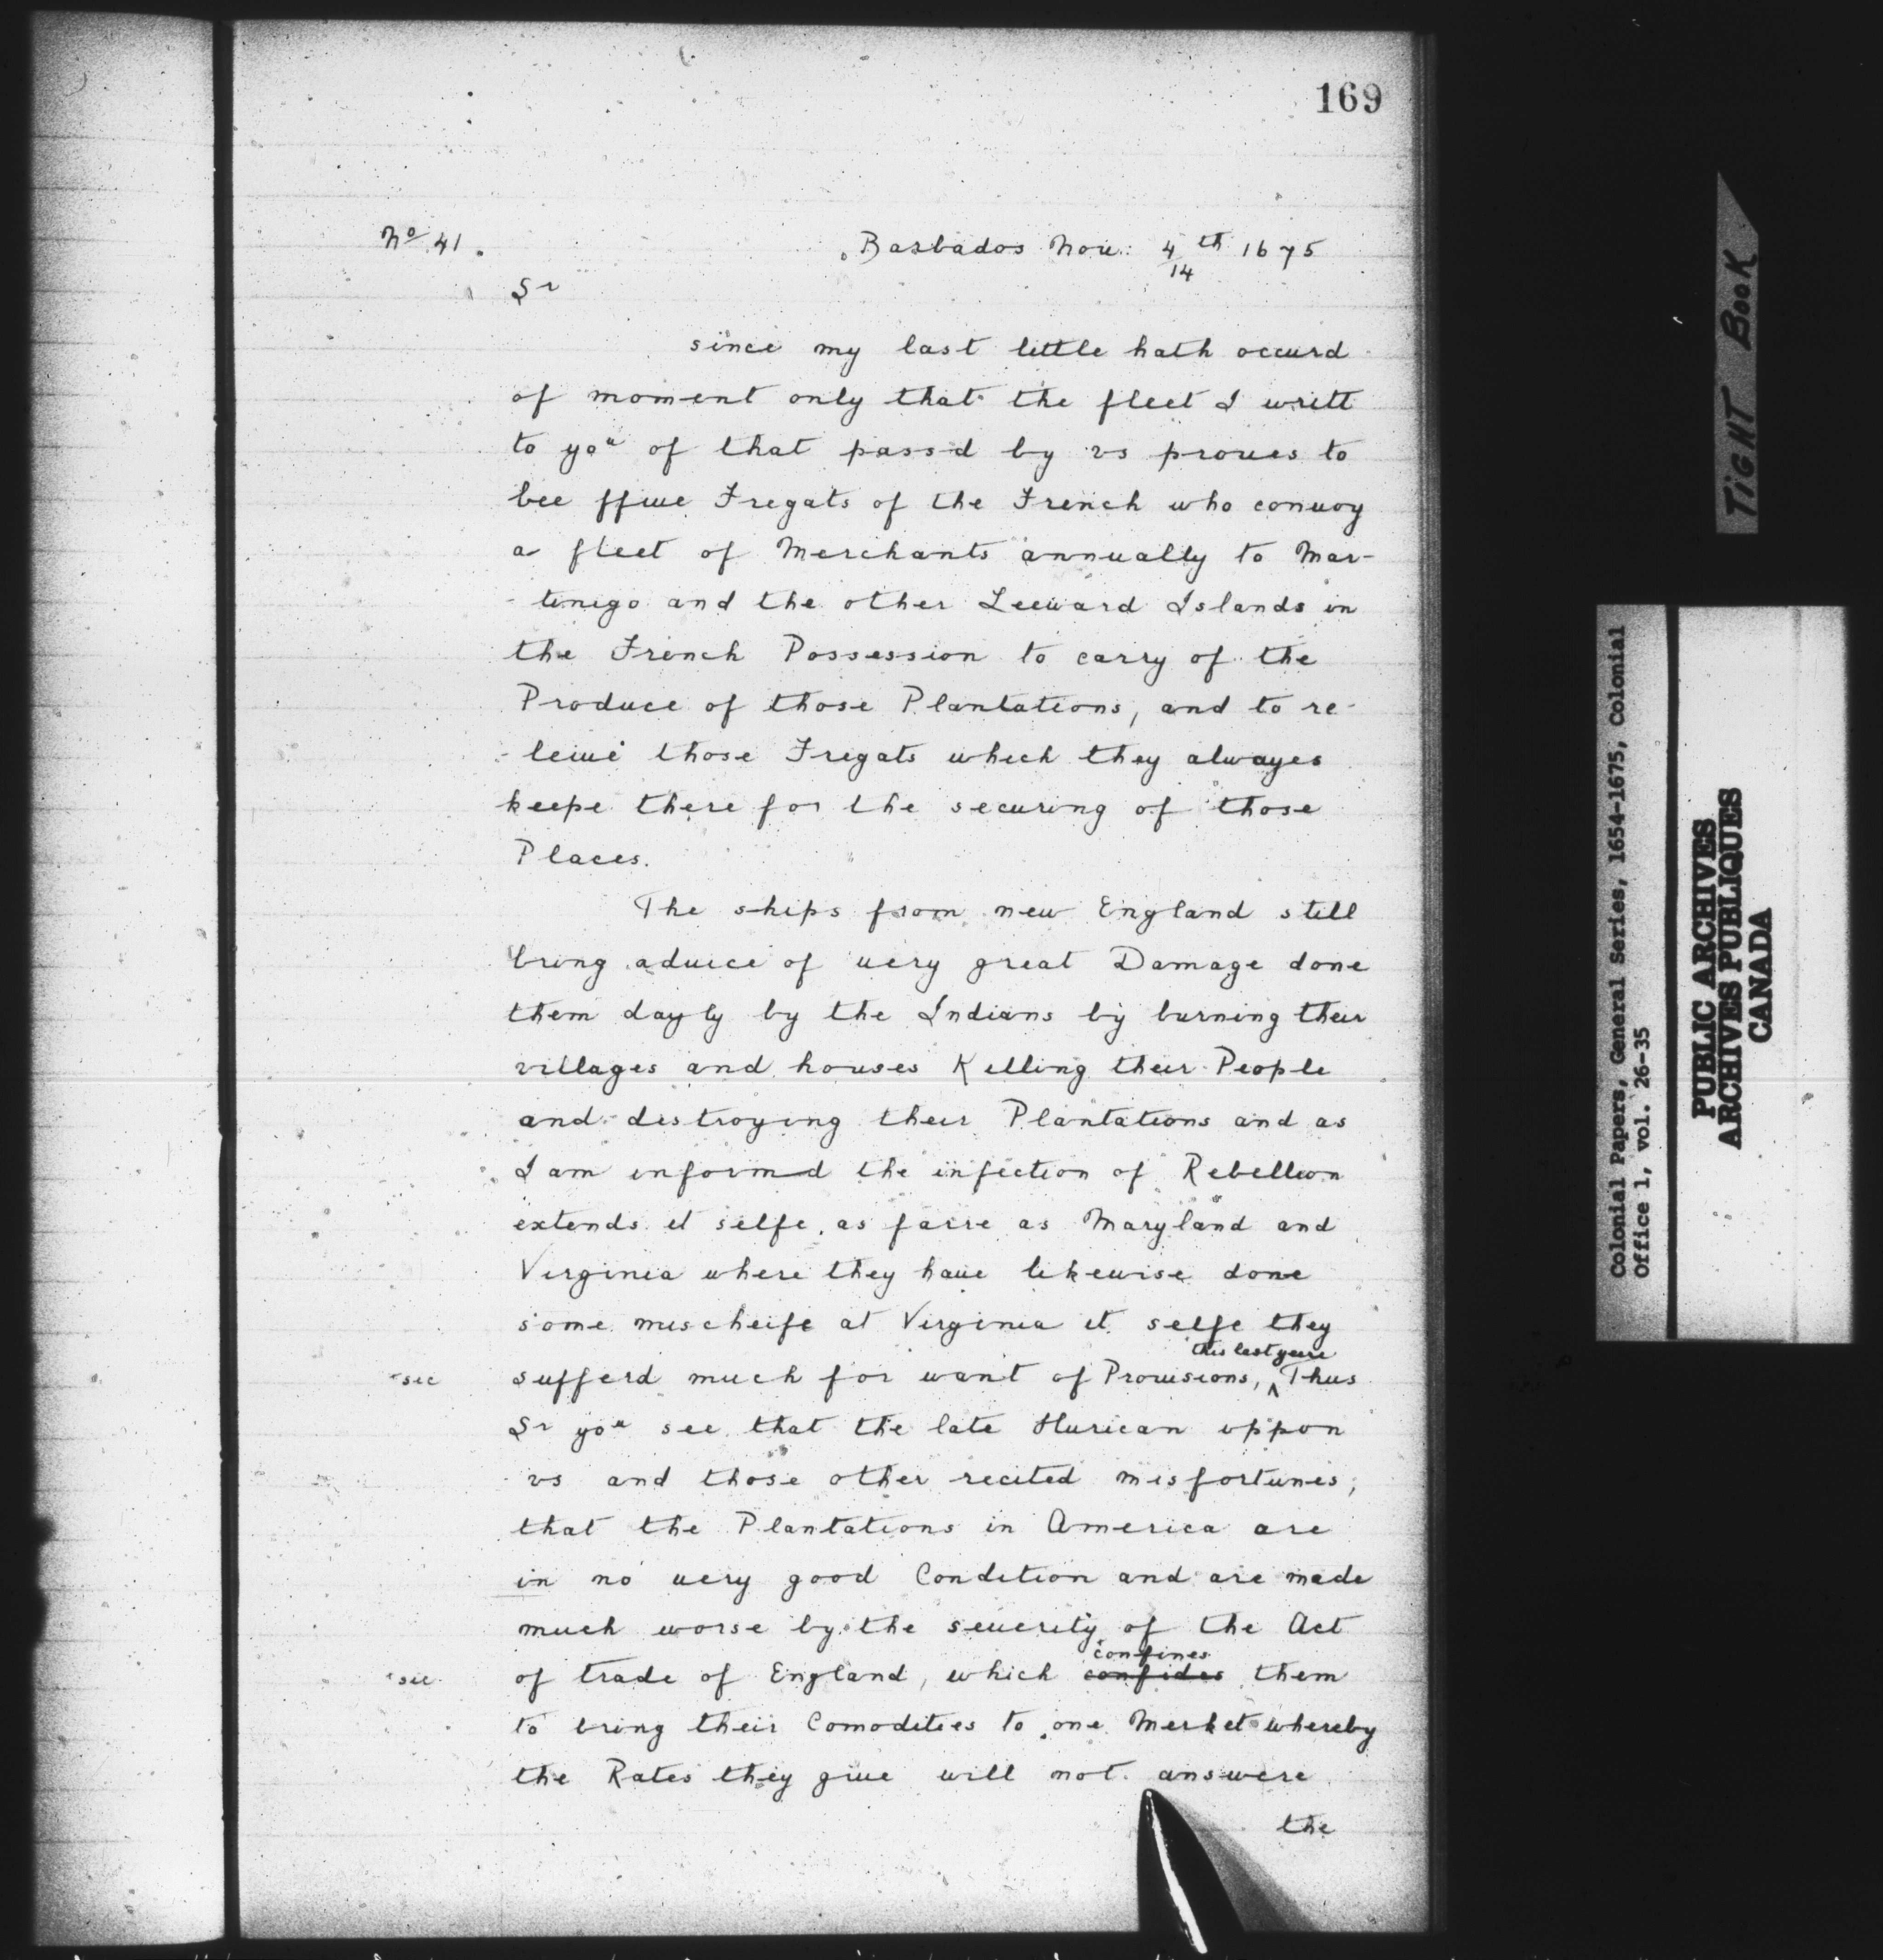 169
No 41.
Barbados Nou: 4/14 th 1675
Sr
since my last little hath occurd
of moment only that the fleet I writt
to you of that passd by vs proues to
bee ffiue Fregats of the French who conuoy
a fleet of Merchants annually to Mar-
-tinigo and the other Leeward Islands in
the French Possession to carry of the
Produce of those Plantations, and to re-
-leiue those Fregats which they alwayes
keepe there for the securing of those
Places.
The ships from new England still
bring aduice of uery great Damage done
them dayly by the Indians by burning their
villages and houses Killing their People
and destroying their Plantations and as
I am informd the infection of Rebellion
extends it selfe as farre as Maryland and
Virginia where they haue likewise done
some mischeife at Virginia it selfe they
this last yeare
sic sufferd much for want of Prouisions, ^ Thus
Sr you see that the late Hurican vppon
vs and those other recited misfortunes,
that the Plantations in America are
in no uery good Condition and are made
much worse by the seuerity of the Act
confines
sic of trade of England, which confides them
to bring their Comodities to one Merket whereby
the Rates they giue will not answere
the
TIGHT BOOK
Colonial Papers, General Series, 1654-1675, Colonial
Office 1, vol. 26-35
PUBLIC ARCHIVES
ARCHIVES PUBLIQUES
CANADA